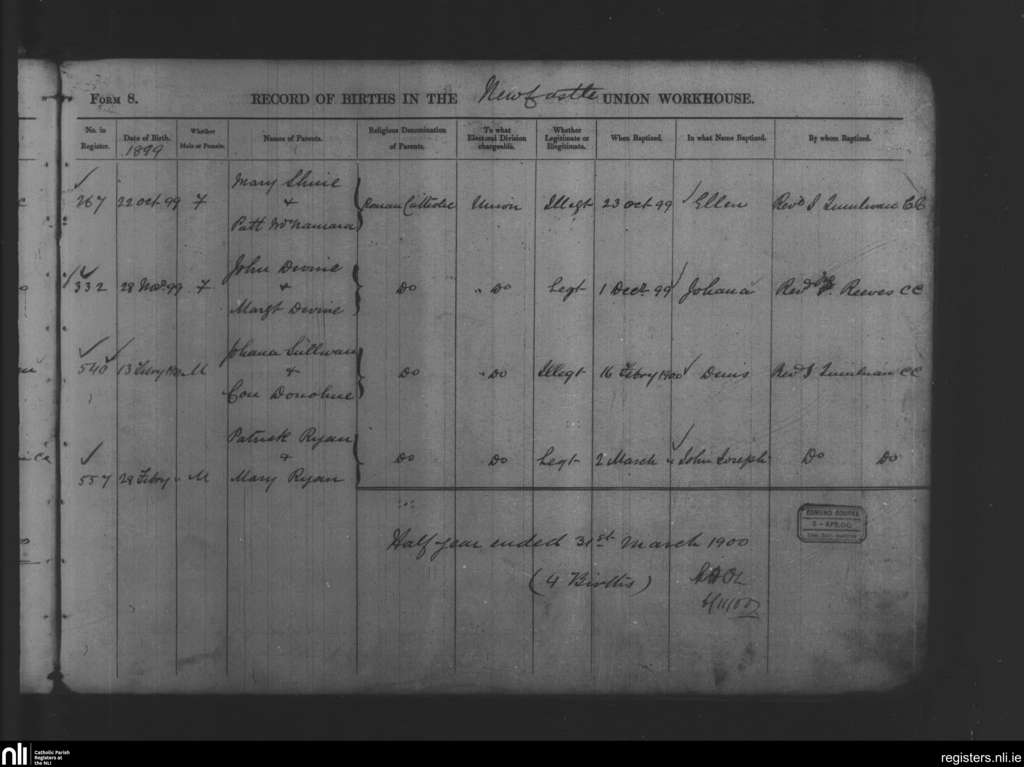 Form 8. RECORD OF BIRTHS IN THE Newcastle UNION WORKHOUSE.
No. in Register. Date of Birth. Whether Male or Female. Names of Parents. Religious Denomination of Parents. To what Electoral Division chargeable. Whether Legitimate or Illegitimate. When Baptized. In what Name Baptized. By whom Baptized.
1899
Mary Shine
267 22 Oct 99 F & Roman Catholic Union Illegt 23 Oct 99 Ellen Revd J Quinlivan CC
Patt McNamara
John Devine
332 28 Novr 99 F & Do " Do Legt 1 Decr 99 Johana Revd Reeves CC
Margt Devine
Johana Sullivan
540 13 Febry 1900 M & Do " Do Illegt 16 Febry 1900 Denis Revd J Quinlivan CC
Con Donohue
Patrick Ryan
& Do Do Legt 2 March " John Joseph Do Do
557 28 Febry " M Mary Ryan
Half year ended 31st March 1900
(4 Births)
nli Catholic Parish
Registers at
the NLI
registers.nli.ie